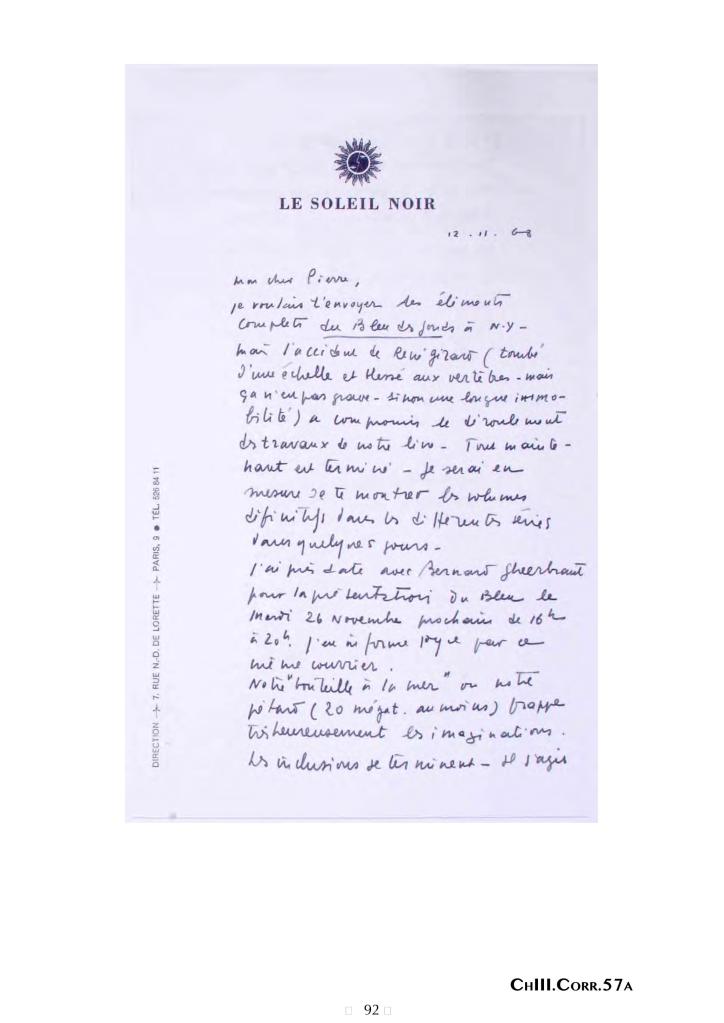 LE SOLEIL NOIR
12 . 11 . 68
Mon cher Pierre,
je voulais t'envoyer des éléments
complets du Bleu des fonds à N.Y –
mais l'accident de René Girard (tombé
d'une échelle et blessé aux vertèbres – mais
ça n'est pas grave – sinon une longue immo-
bilité) a compromis le déroulement
des travaux de notre livre – Tout mainte-
nant est terminé – Je serai en
mesure de te montrer les volumes
définitifs dans les différentes séries
dans quelques jours –
J'ai pris date avec Bernard Gheerbrant
pour la présentation du Bleu le
Mardi 26 Novembre prochain de 16h
à 20h. J'en informe par ce
même courrier.
Notre "bouteille à la mer" ou notre
pétard (20 mégat. au moins) frappe
très heureusement les imaginations.
Les inclusions se terminent – Il s'agit
DIRECTION 7, RUE N.-D. DE LORETTE PARIS, 9 ● TÉL. 526 84 11
CHIII.CORR.57A
92